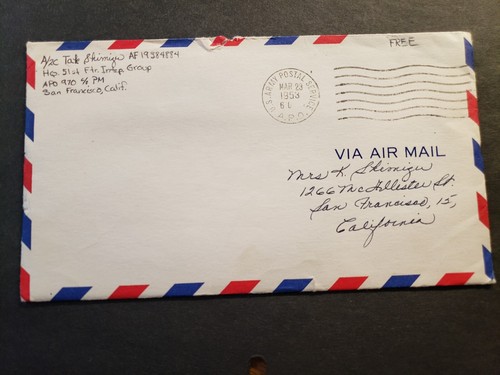 A/2C Tak Shimizu AF19384884
Hqs. 51st Ftr. Intcp. Group
APO 970 c/o PM
San Francisco, Calif.
FREE
U.S. ARMY POSTAL SERVICE
MAR 23
1953
A.P.O.
VIA AIR MAIL
Mrs K. Shimizu
1266 McAllister St.
San Francisco, 15,
California